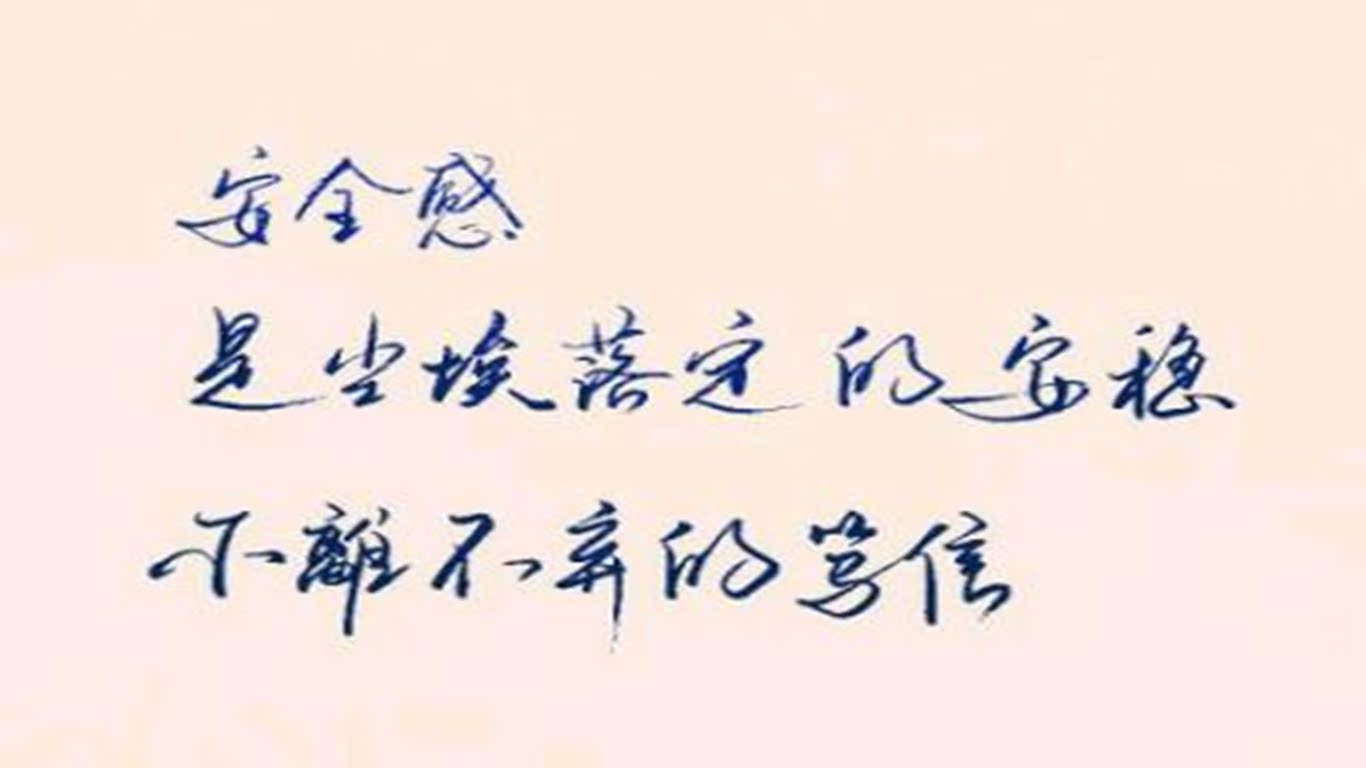 安全感
是尘埃落定的安稳
不離不弃的笃信